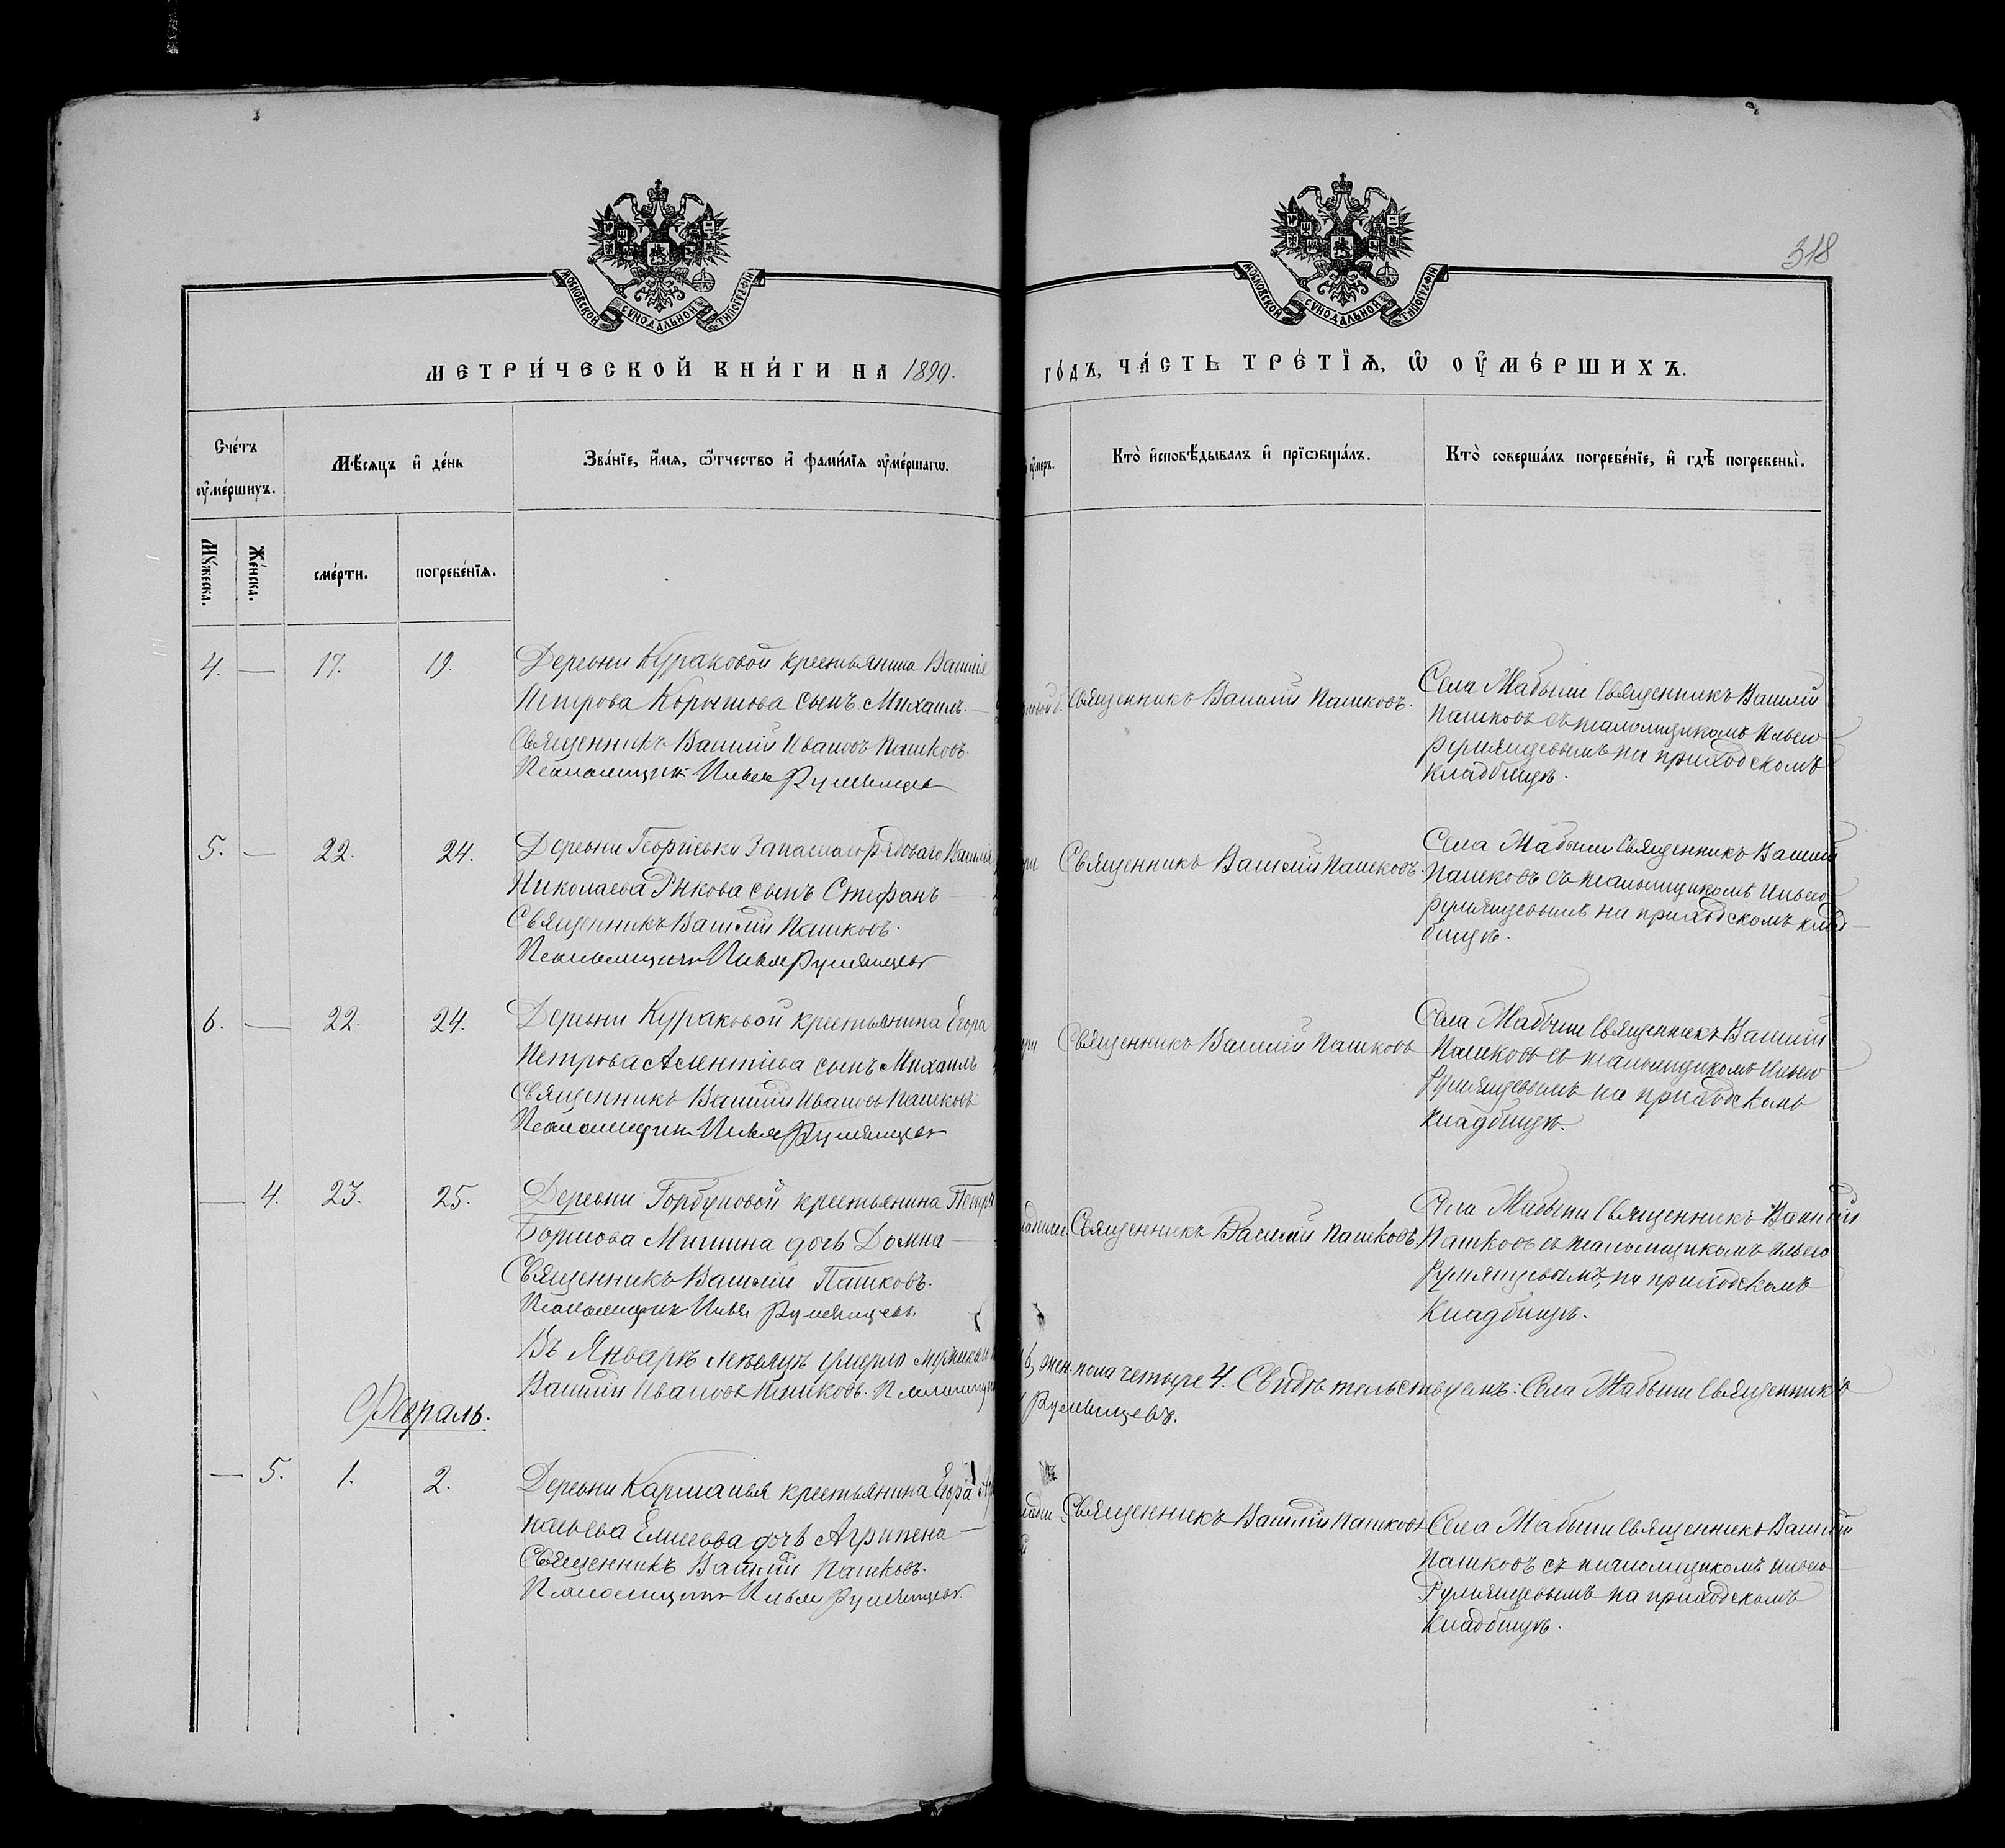 318
МОСКОВСКОЙ СУНОДАЛЬНОЙ ТИПОГРАФІИ
МОСКОВСКОЙ СУНОДАЛЬНОЙ ТИПОГРАФІИ
МЕТРИ́ЧЕСКОЙ КНИ́ГИ НА 1899.
ГО́ДЪ, ЧА́СТЬ ТРЕ́ТЇѦ, Ѡ҆ ОУ҆МЕ́РШИХЪ.
Сче́тъ
оу҆ме́ршихъ.
Мѣ́сяцъ и҆ де́нь
Зва́нїе, и҆́мя, ѻ҆́тчество и҆ фами́лїя оу҆ме́ршагѡ.
оу҆́меръ.
Кто̀ и҆сповѣ́дывалъ и҆ прїѡбща́лъ.
Кто̀ соверша́лъ погребе́нїе, и҆ гдѣ̀ погребены̀.
Мꙋ́жеска.
Же́нска.
сме́рти.
погребе́нїѧ.
4. — 17. 19.
Деревни Кураковой крестьянина Василія
Петрова Корытова сынъ Михаилъ. —
Священникъ Василій Ивановъ Пашковъ.
Псаломщикъ Илья Румянцевъ
Священникъ Василій Пашковъ.
Села Жабыни Священникъ Василій
Пашковъ съ псаломщикомъ Ильею
Румянцевымъ на приходскомъ
кладбищѣ.
5. — 22. 24.
Деревни Запаснаго рядоваго Василія
Николаева Рыкова сынъ Стефанъ —
Священникъ Василій Пашковъ.
Псаломщикъ Илья Румянцевъ
Священникъ Василій Пашковъ.
Села Жабыни Священникъ Василій
Пашковъ съ псаломщикомъ Ильею
Румянцевымъ на приходскомъ клад-
бищѣ.
6. — 22. 24.
Деревни Кураковой крестьянина Егора
Петрова сынъ Михаилъ
Священникъ Василій Ивановъ Пашковъ
Псаломщикъ Илья Румянцевъ
Священникъ Василій Пашковъ
Села Жабыни Священникъ Василій
Пашковъ съ псаломщикомъ Ильею
Румянцевымъ на приходскомъ
кладбищѣ.
— 4. 23. 25.
Деревни Горбуновой крестьянина Петра
Борисова Мишина дочь Домна —
Священникъ Василій Пашковъ.
Псаломщикъ Илья Румянцевъ.
Священникъ Василій Пашковъ.
Села Жабыни Священникъ Василій
Пашковъ съ псаломщикомъ Ильею
Румянцевымъ, на приходскомъ
Кладбищѣ.
Въ Январѣ мѣсяцѣ умерло мужска
6, жен. пола четыре 4. Свидѣтельствуемъ: Села Жабыни Священникъ
Василій Ивановъ Пашковъ. Псаломщикъ
Румянцевъ.
Февраль.
— 5. 1. 2.
Деревни крестьянина Егора
Елисеева дочь Агрипена —
Священникъ Василій Пашковъ.
Псаломщикъ Илья Румянцевъ.
Священникъ Василій Пашковъ
Села Жабыни Священникъ Василій
Пашковъ съ псаломщикомъ Ильею
Румянцевымъ на приходскомъ
Кладбищѣ.